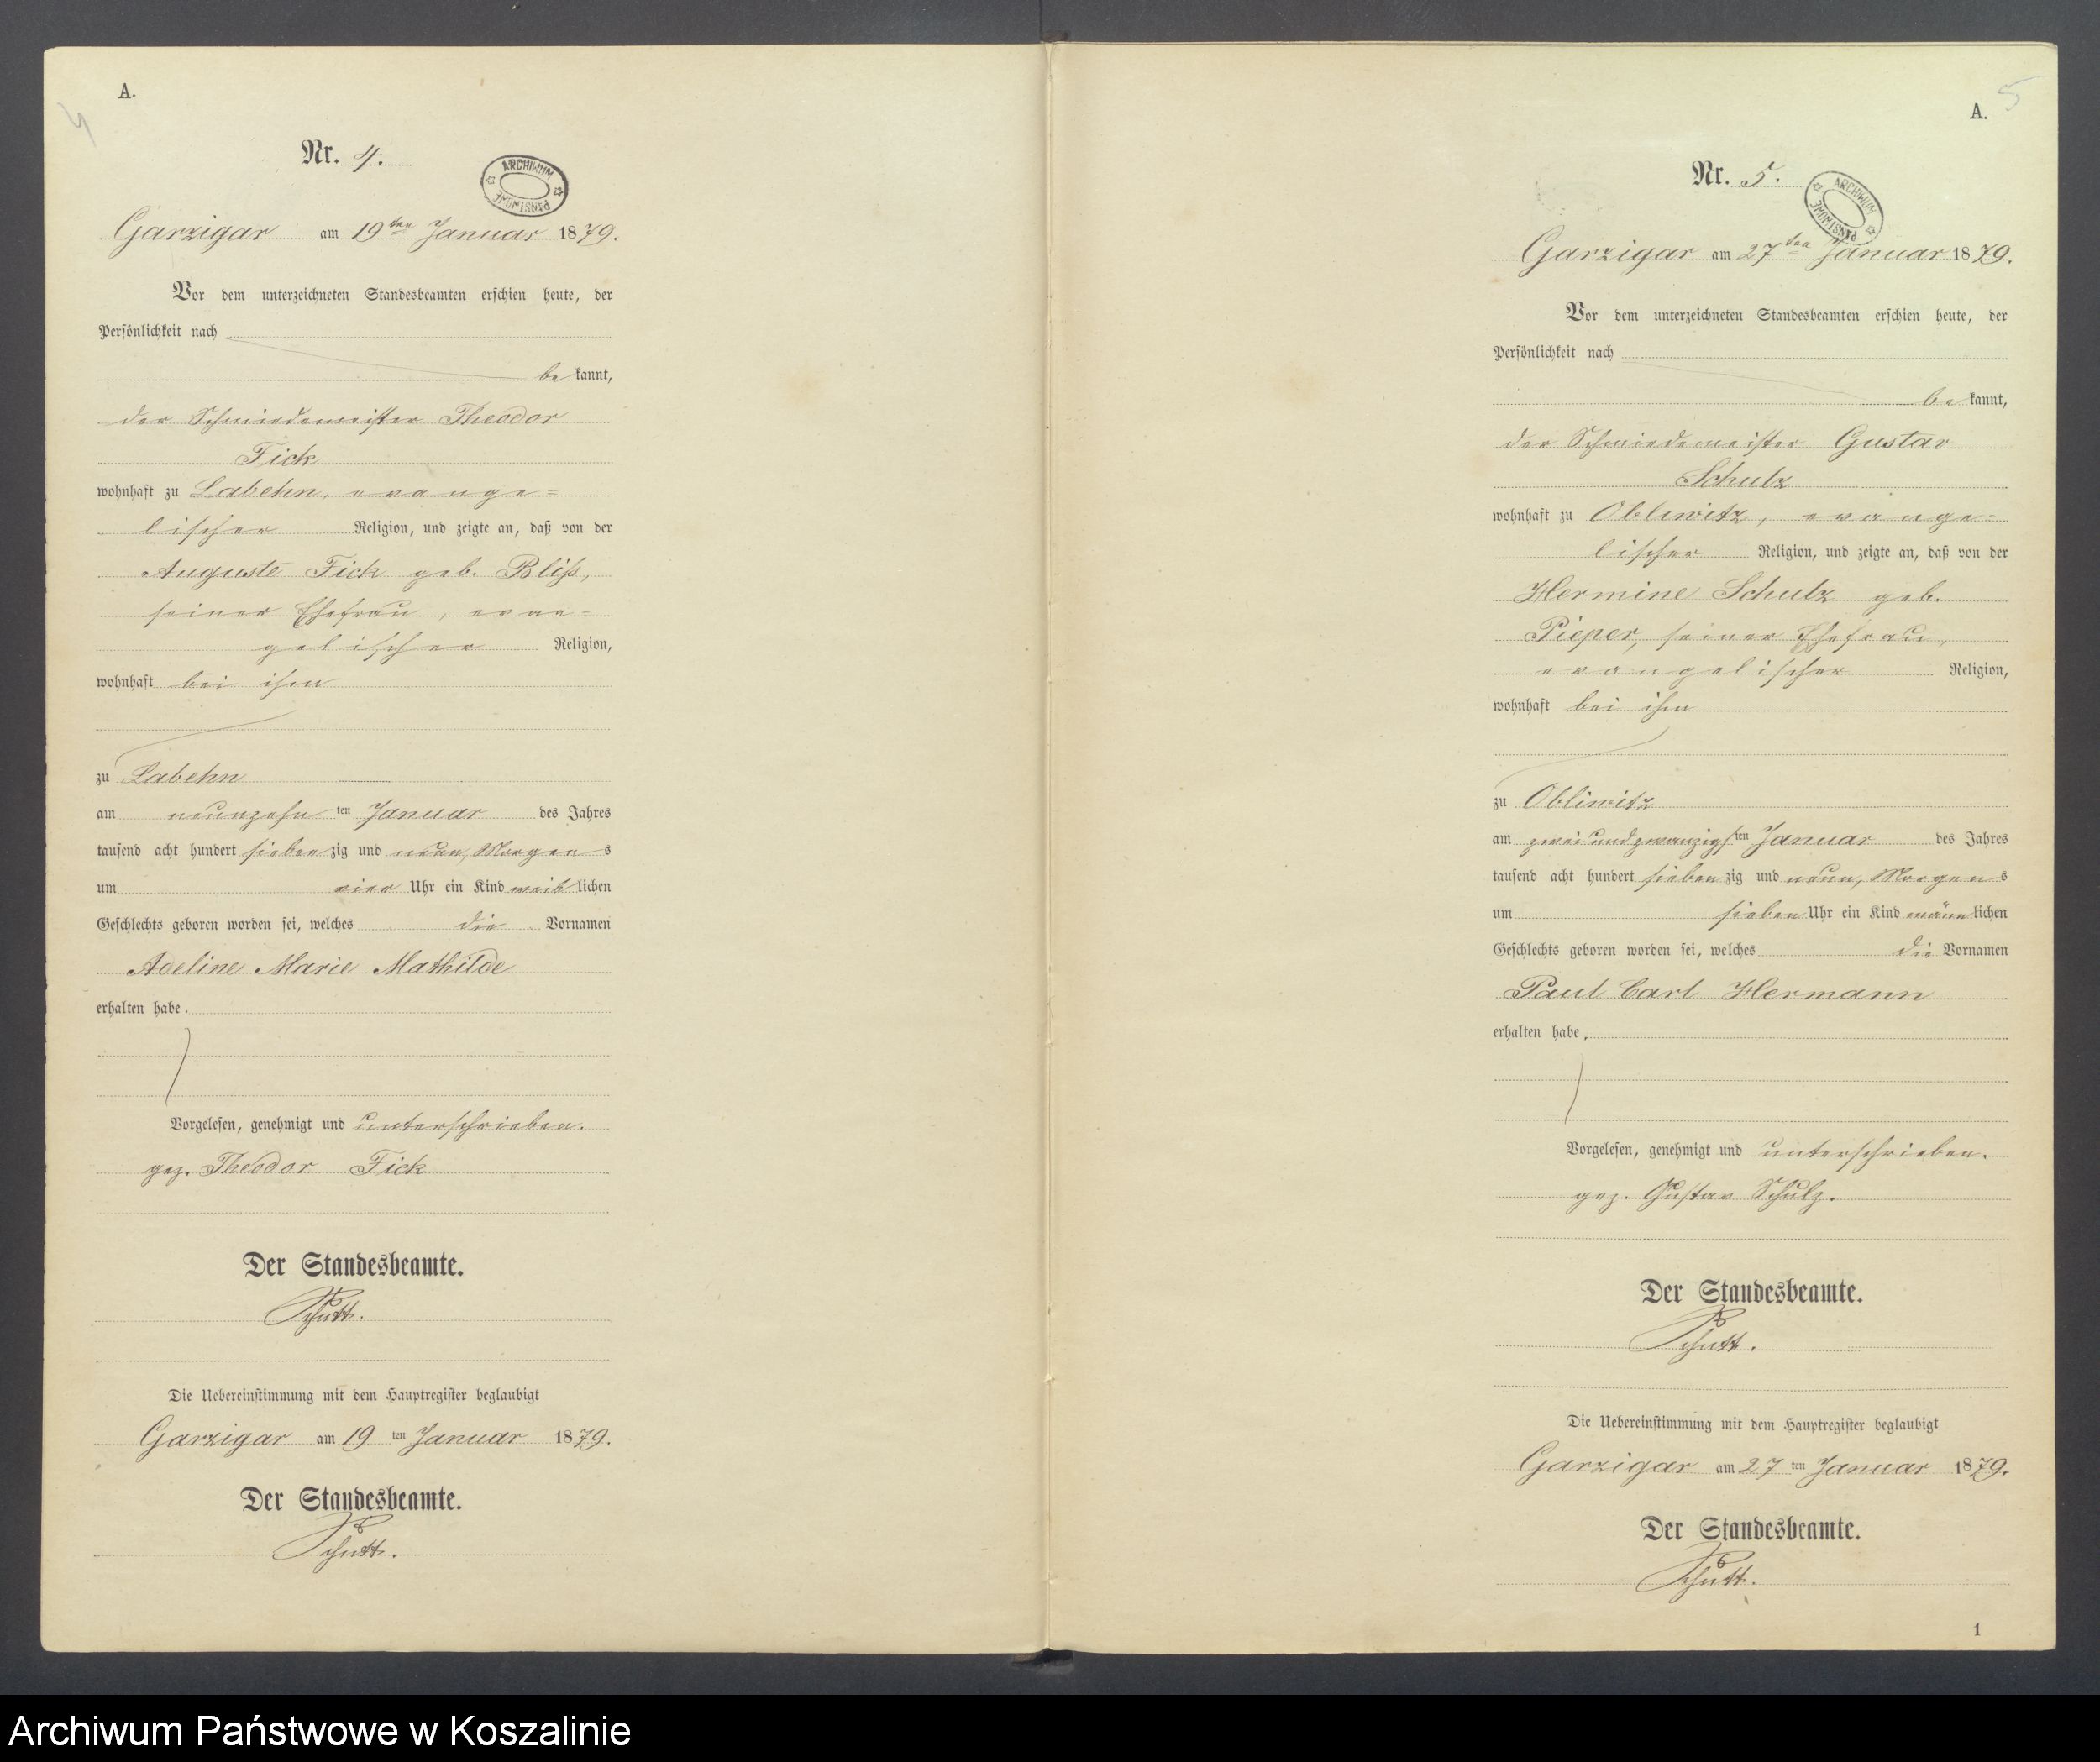 4
A.
Nr. 4.
ARCHIWUM PAŃSTWOWE
Garzigar am 19ten Januar 1879.
Vor dem unterzeichneten Standesbeamten erschien heute, der
Persönlichkeit nach
be kannt,
der Schmiedemeister Theodor
Fick
wohnhaft zu Labehn, evange=
lischer Religion, und zeigte an, daß von der
Auguste Fick geb. Bliss,
seiner Ehefrau, evan=
gelischer Religion,
wohnhaft bei ihm
zu Labehn
am neunzehn ten Januar des Jahres
tausend acht hundert sieben zig und neun, Morgen s
um vier Uhr ein Kind weib lichen
Geschlechts geboren worden sei, welches die Vornamen
Adeline Marie Mathilde
erhalten habe.
Vorgelesen, genehmigt und unterschrieben.
gez. Theodor Fick
Der Standesbeamte.
Schutt.
Die Uebereinstimmung mit dem Hauptregister beglaubigt
Garzigar am 19 ten Januar 1879.
Der Standesbeamte.
Schutt.
5
A.
Nr. 5.
ARCHIWUM PAŃSTWOWE
Garzigar am 27ten Januar 1879.
Vor dem unterzeichneten Standesbeamten erschien heute, der
Persönlichkeit nach
be kannt,
der Schmiedemeister Gustav
Schulz
wohnhaft zu Obliwitz, evange=
lischer Religion, und zeigte an, daß von der
Hermine Schulz geb.
Pieper, seiner Ehefrau,
evangelischer Religion,
wohnhaft bei ihm
zu Obliwitz
am zwei und zwanzigs ten Januar des Jahres
tausend acht hundert sieben zig und neun, Morgen s
um sieben Uhr ein Kind männ lichen
Geschlechts geboren worden sei, welches die Vornamen
Paul Carl Hermann
erhalten habe.
Vorgelesen, genehmigt und unterschrieben.
gez. Gustav Schulz.
Der Standesbeamte.
Schutt.
Die Uebereinstimmung mit dem Hauptregister beglaubigt
Garzigar am 27 ten Januar 1879.
Der Standesbeamte.
Schutt.
1
Archiwum Państwowe w Koszalinie